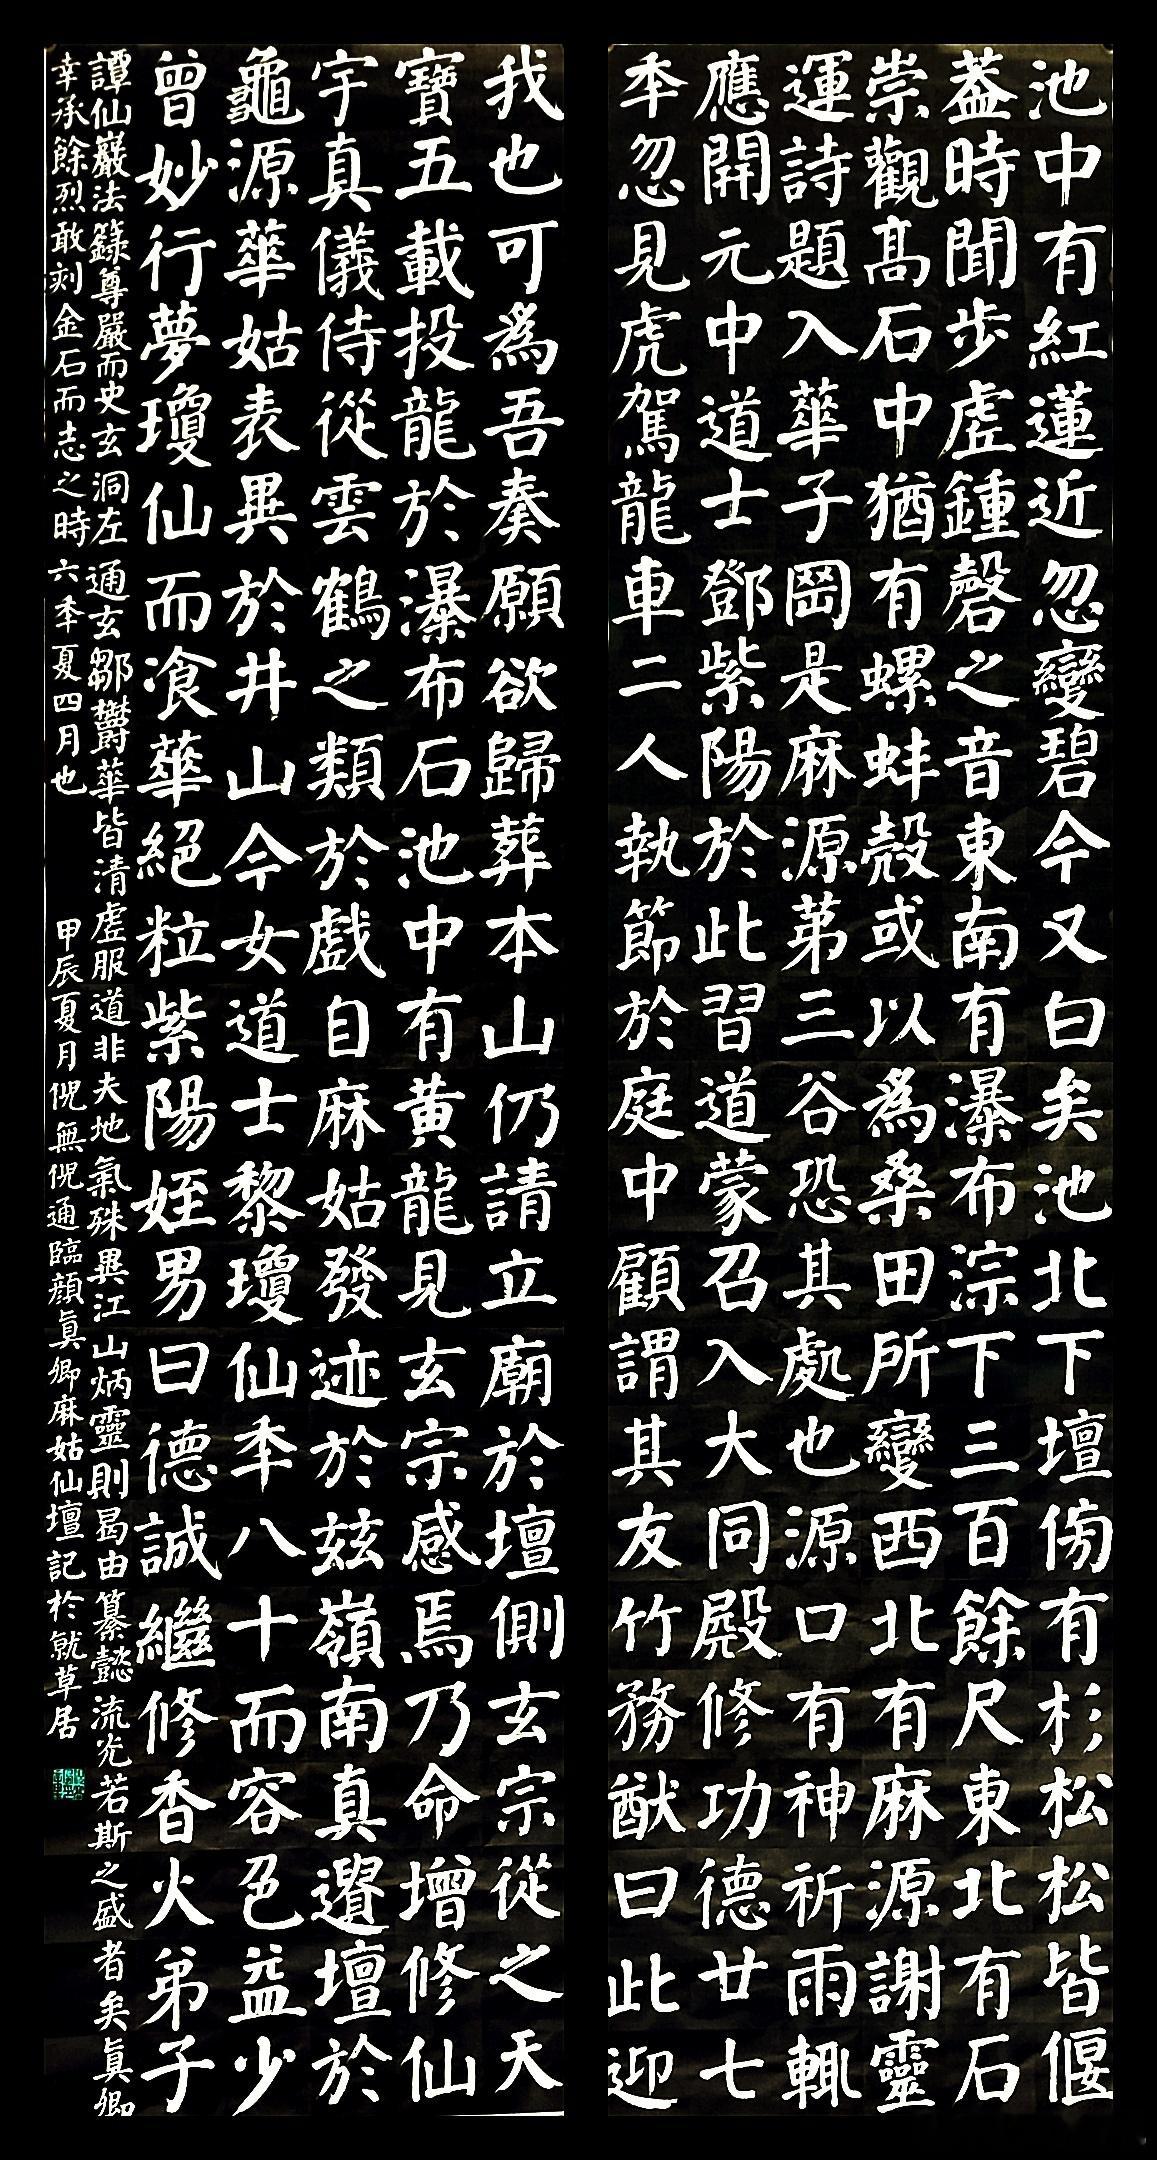 池中有紅蓮近忽變碧今又白矣池北下壇傍有杉松松皆偃
蓋時聞步虛鍾磬之音東南有瀑布淙下三百餘尺東北有石
崇觀高石中猶有螺蚌殼或以為桑田所變西北有麻源謝靈
運詩題入華子岡是麻源第三谷恐其處也源口有神祈雨輒
應開元中道士鄧紫陽於此習道蒙召入大同殿修功德廿七
年忽見虎駕龍車二人執節於庭中顧謂其友竹務猷曰此迎
我也可為吾奏願欲歸葬本山仍請立廟於壇側玄宗從之天
寶五載投龍於瀑布石池中有黃龍見玄宗感焉乃命增修仙
宇真儀侍從雲鶴之類於戲自麻姑發迹於茲嶺南真遺壇於
龜源華姑表異於井山今女道士黎瓊仙年八十而容色益少
曾妙行夢瓊仙而飡華絕粒紫陽姪男曰德誠繼修香火弟子
譚仙巖法籙尊嚴而史玄洞左通玄鄒鬱華皆清虛服道非夫地氣殊異江山炳靈則曷由纂懿流光若斯之盛者矣真卿
幸承餘烈敢刻金石而志之時六年夏四月也
甲辰夏月倪無倪通臨顏真卿麻姑仙壇記於就草居